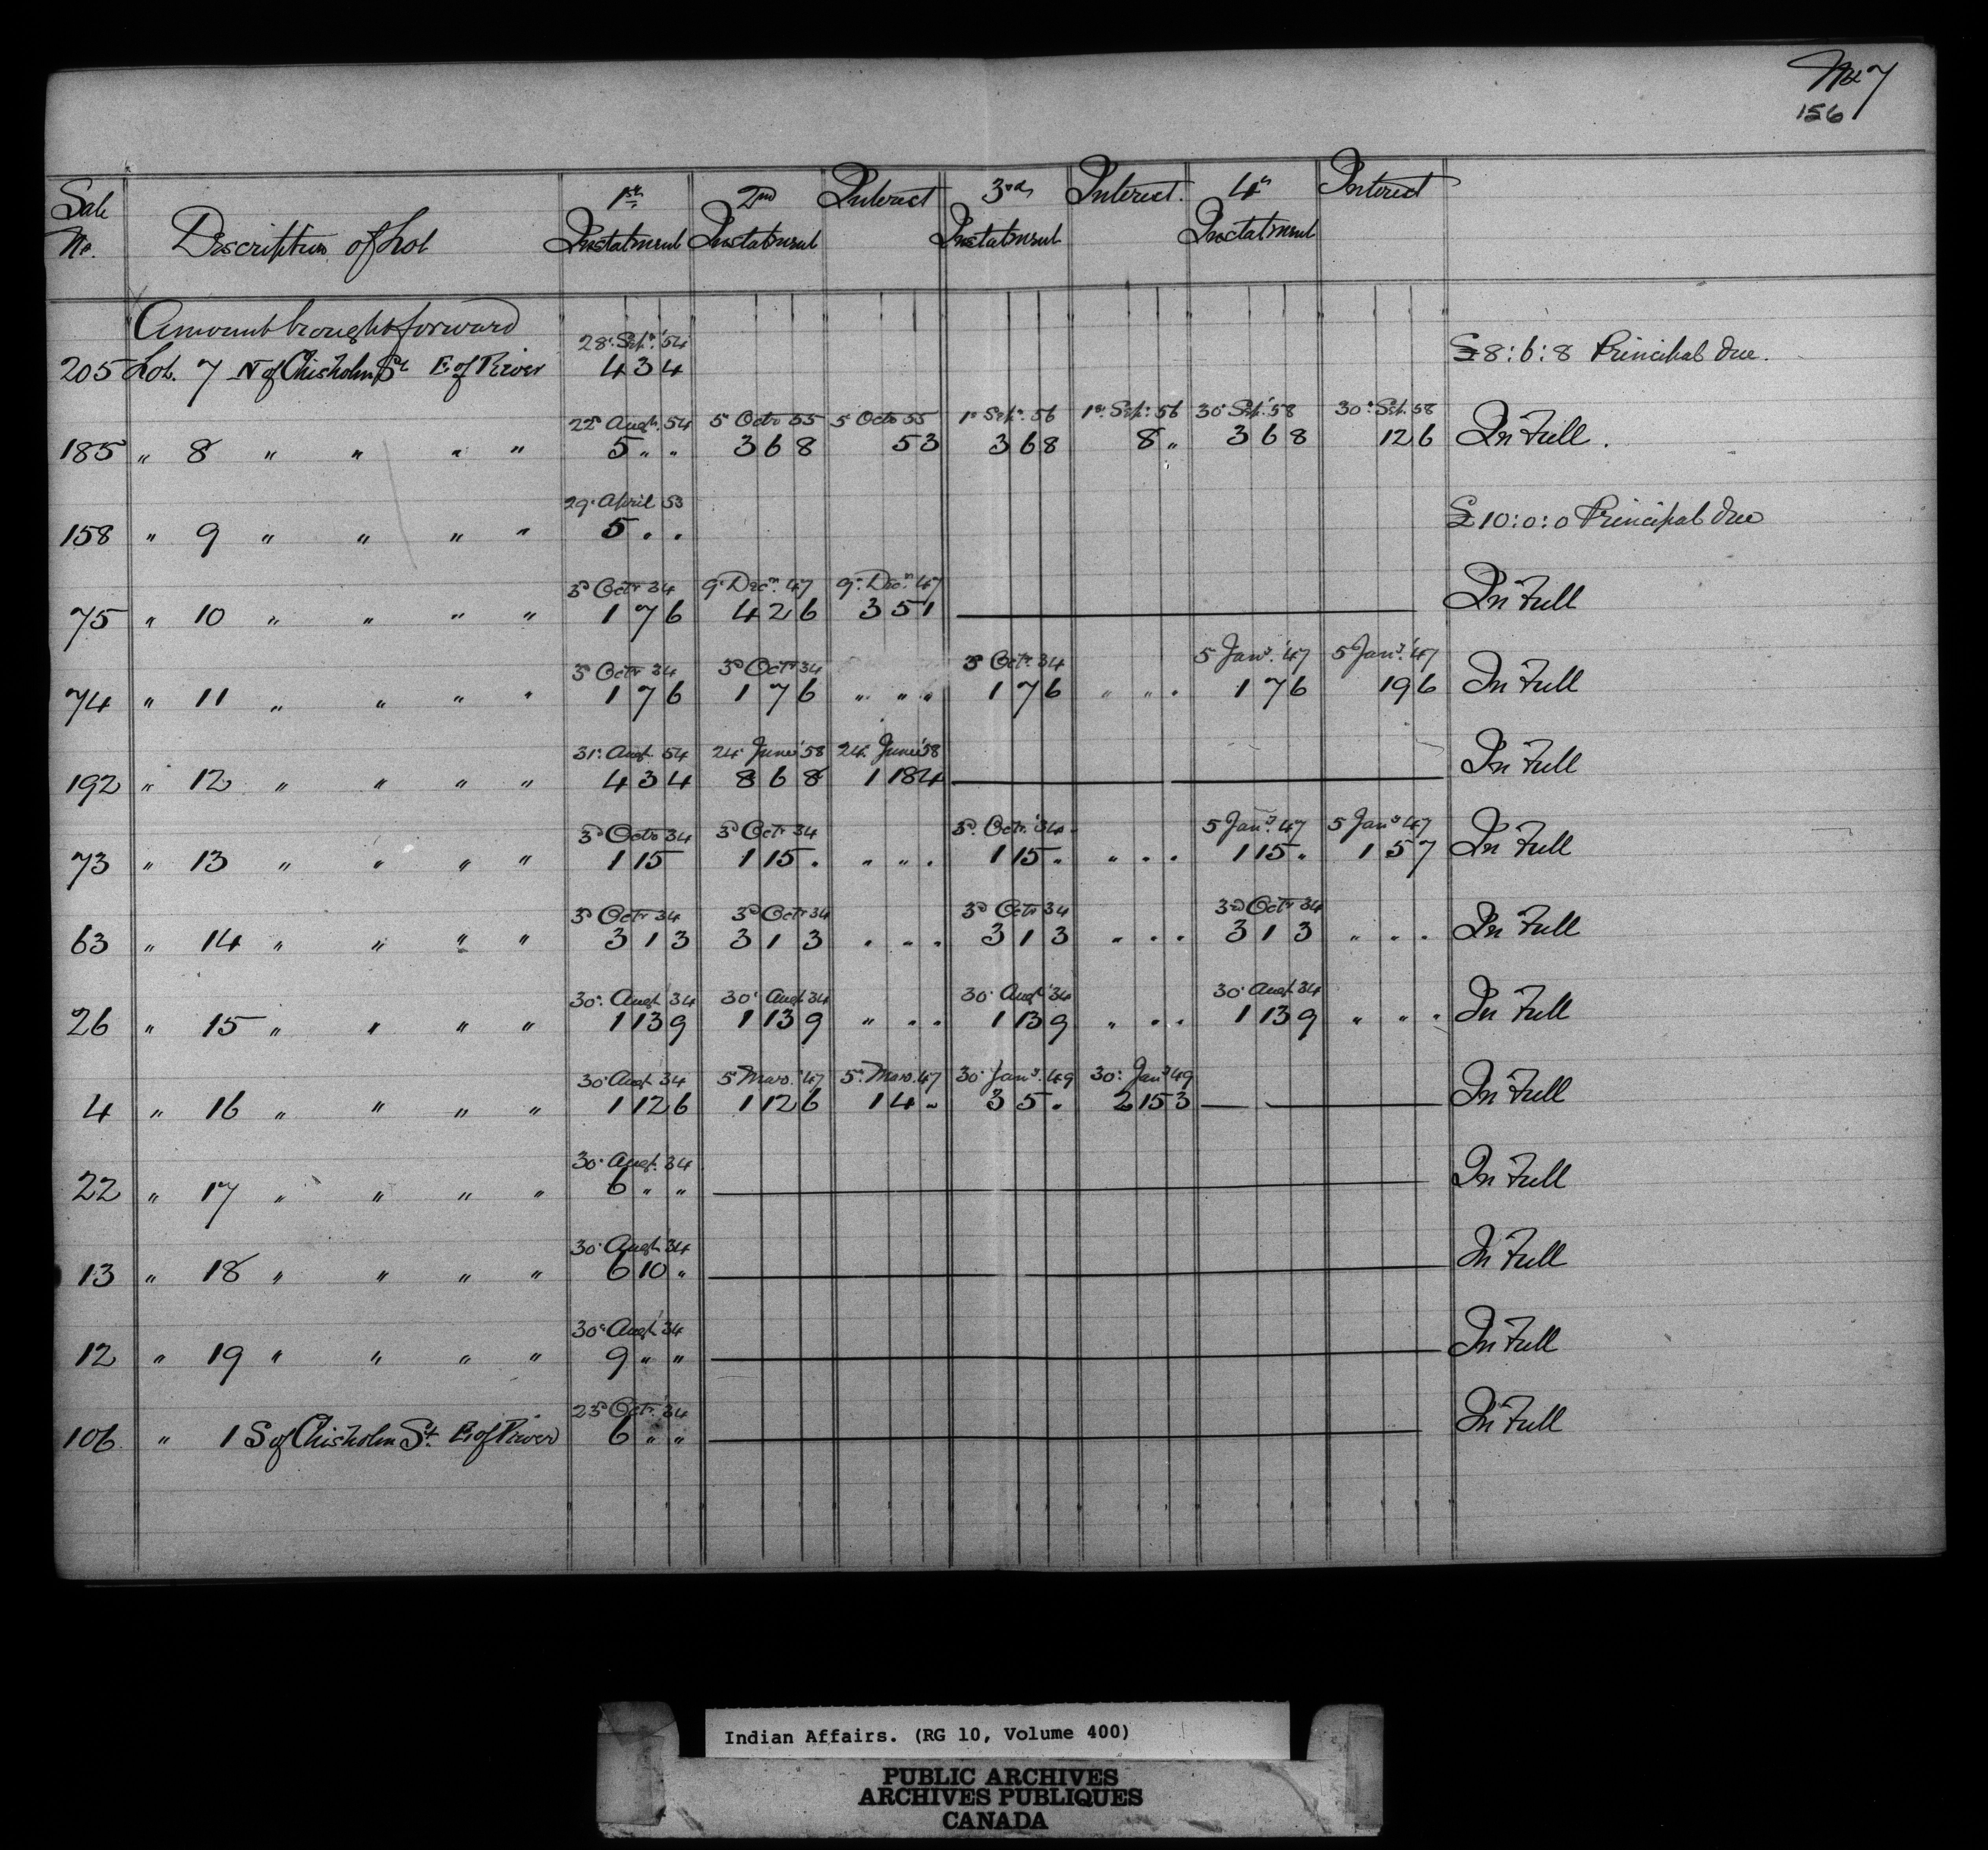 No 7
156
Sale No. Description of Lot 1st Instalment 2nd Instalment Interest 3rd Instalment Interest. 4th Instalment Interest
Amount brought forward
28 Sepr. '54
205 Lot. 7 N of Chisholm St E. of River 4 3 4 £8:6:8 Principal due.
22d Augt. 54 5 Octr 55 5 Octr 55 1st Sepr. 56 1st Sepr. 56 30 Sep. '58 30 Sep. 58
185 " 8 " " " " 5 " " 3 6 8 5 3 3 6 8 8 " 3 6 8 12 6 In Full.
29 April 53
158 " 9 " " " " 5 . . £10:0:0 Principal due
3d Octr 34 9 Decr. 47 9 Decr. 47
75 " 10 " " " " 1 7 6 4 2 6 3 5 1 In Full
3d Octr 34 3d Octr 34 3d Octr. 34 5 Jany. '47 5 Jany. '47
74 " 11 " " " " 1 7 6 1 7 6 " " " 1 7 6 " " " 1 7 6 19 6 In Full
31 Augt. 54 24 June '58 24 June '58
192 " 12 " " " " 4 3 4 8 6 8 1 18 4 In Full
3d Octr 34 3d Octr 34 3d Octr. '34 5 Jany. '47 5 Jany 47
73 " 13 " " " " 1 15 1 15 . " " . 1 15 . " . . 1 15 . 1 5 7 In Full
3d Octr 34 3d Octr 34 3d Octr 34 3rd Octr 34
63 " 14 " " " " 3 1 3 3 1 3 . . . 3 1 3 . . . 3 1 3 " . . In Full
30 Augt 34 30 Augt 34 30 Augt '34 30 Augt 34
26 " 15 " " " " 1 13 9 1 13 9 " . . 1 13 9 " . . 1 13 9 " " . In Full
30 Augt 34 5 March '47 5 March 47 30 Jany. 49 30 Jany 49
4 " 16 " " " " 1 12 6 1 12 6 1 4 " 3 5 . 2 15 3 In Full
30 Augt. 34
22 " 17 " " " " 6 " " In Full
30 Augt '34
13 " 18 " " " " 6 10 " In Full
30 Augt '34
12 " 19 " " " " 9 " " In Full
23d Octr. '34
106 " 1 S of Chisholm St. E. of River 6 " " In Full
Indian Affairs. (RG 10, Volume 400)
PUBLIC ARCHIVES
ARCHIVES PUBLIQUES
CANADA